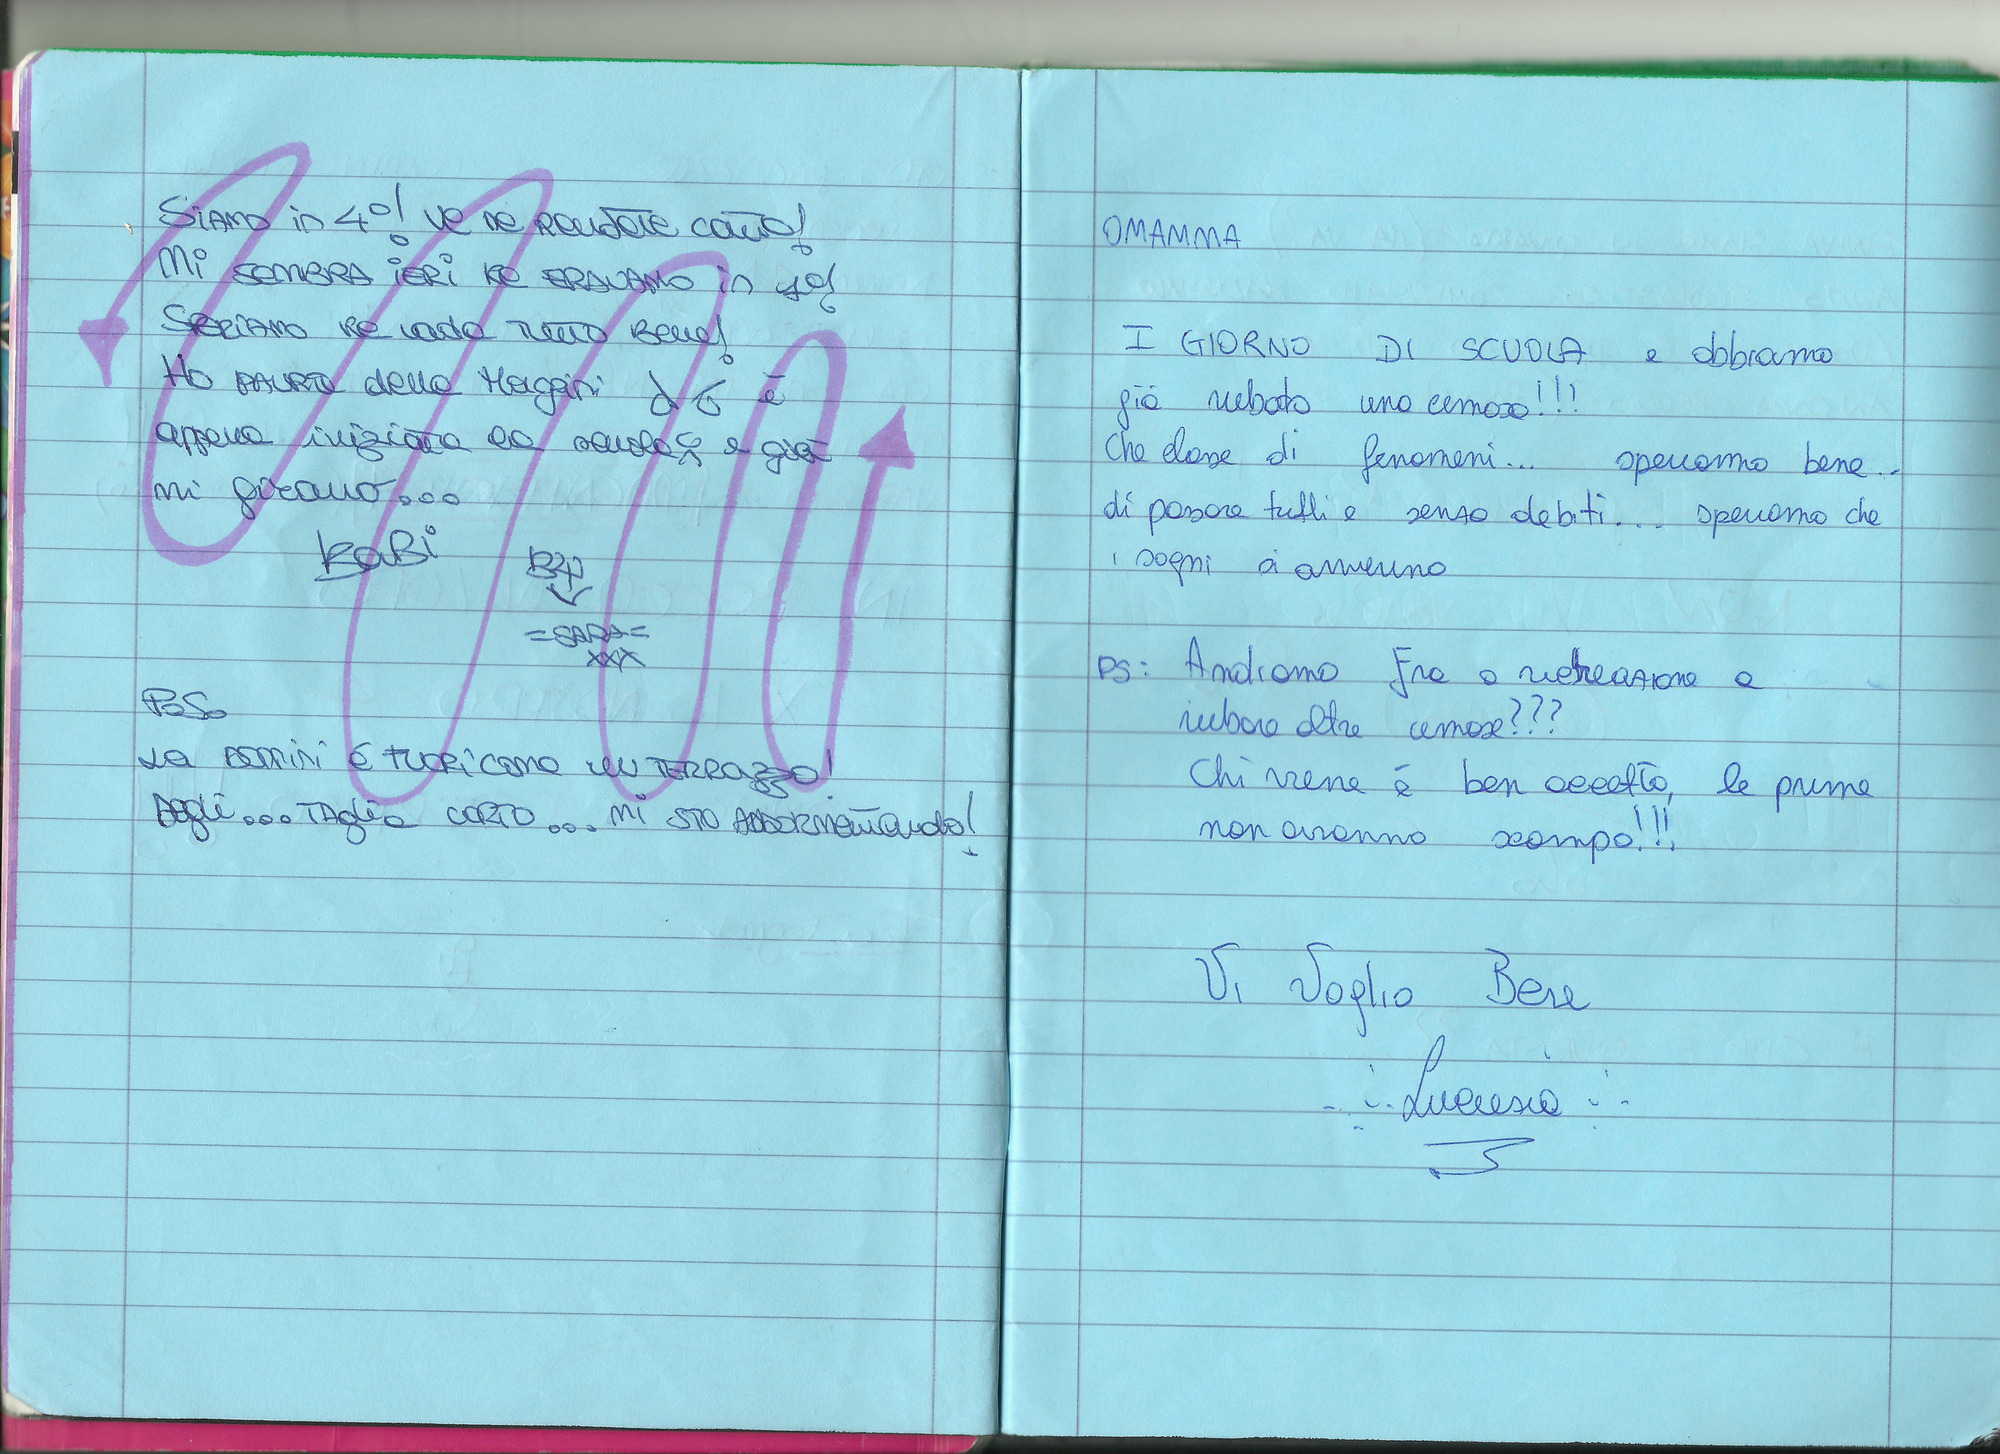 Siamo in 4°! ve ne rendete conto!
Mi sembra ieri ke eravamo in 1°!
Speriamo ke vada tutto bene!
Ho paura della Magrini è
appena iniziata la scuola e già
mi girano...
By
=SARA=
xxx
P.S.
La è fuori come un TERRAZZO!
Taglio corto... mi sto addormentando!
OMAMMA
I GIORNO DI SCUOLA e abbiamo
già rubato una cimosa!!!
Che classe di fenomeni... speriamo bene..
di passare tutti e senza debiti... speriamo che
i sogni si avverino
PS: Andiamo Fra a ricreazione a
rubare altre cimose???
Chi viene è ben accetto, le prime
non avranno scampo!!!
Vi Voglio Bene
Lucrezia